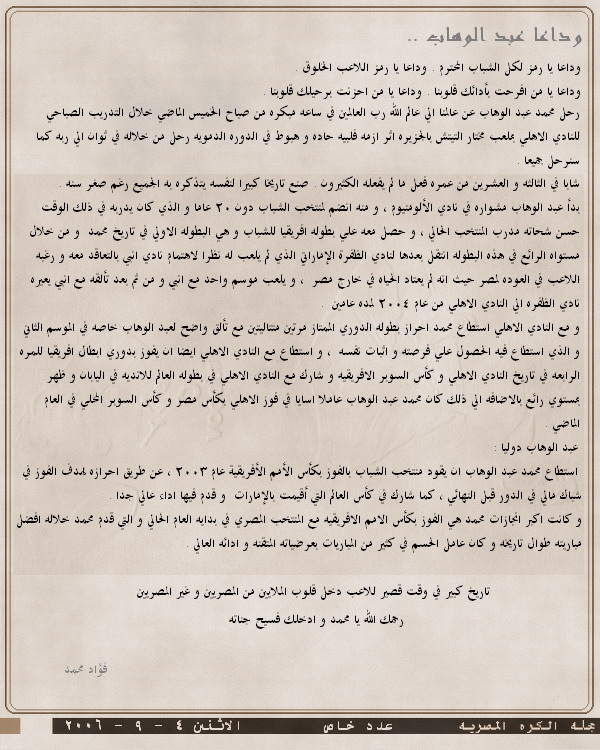 وداعا عبد الوهاب ..
وداعا يا رمز لكل الشباب المحترم . وداعا يا رمز اللاعب الخلوق .
وداعا يا من افرحت بأدائك قلوبنا . وداعا يا من احزنت برحيلك قلوبنا .
رحل محمد عبد الوهاب عن عالمنا الي عالم الله رب العالمين في ساعه مبكره من صباح الخميس الماضي خلال التدريب الصباحي
للنادي الاهلي بملعب مختار التيتش بالجزيره اثر ازمه قلبيه حاده و هبوط في الدوره الدمويه رحل من خلاله في ثوان الي ربه كما
سنرحل جميعا .
شابا في الثالثه و العشرين من عمره فعل ما لم يفعله الكثيرون . صنع تاريخا كبيرا لنفسه يتذكره به الجميع رغم صغر سنه .
بدأ عبد الوهاب مشواره في نادي الألومنيوم ، و منه انضم لمنتخب الشباب دون ٢٠ عاما و الذي كان يدربه في ذلك الوقت
حسن شحاته مدرب المنتخب الحالي ، و حصل معه علي بطوله افريقيا للشباب و هي البطوله الاولي في تاريخ محمد و من خلال
مستواه الرائع في هذه البطوله انتقل بعدها لنادي الظفرة الإماراتي الذي لم يلعب له نظرا لاهتمام نادي انبي بالتعاقد معه و رغبه
اللاعب في العوده لمصر حيث انه لم يعتاد الحياه في خارج مصر ، و يلعب موسم واحد مع انبي و من ثم بعد تألقه مع انبي يعيره
نادي الظفره الي النادي الاهلي من عام ٢٠٠٤ لمده عامين .
و مع النادي الاهلي استطاع محمد احراز بطوله الدوري الممتاز مرتين متتاليتين مع تألق واضح لعبد الوهاب خاصه في الموسم الثاني
و الذي استطاع فيه الحصول علي فرصته و اثبات نفسه ، و استطاع مع النادي الاهلي ايضا ان يفوز بدوري ابطال افريقيا للمره
الرابعه في تاريخ النادي الاهلي و كأس السوبر الافريقيه و شارك مع النادي الاهلي في بطوله العالم للانديه في اليابان و ظهر
بمستوي رائع بالاضافه الي ذلك كان محمد عبد الوهاب عاملا اسايا في فوز الاهلي بكأس مصر و كأس السوبر المحلي في العام
الماضي .
عبد الوهاب دوليا :
استطاع محمد عبد الوهاب ان يقود منتخب الشباب بالفوز بكأس الأمم الأفريقية عام ٢٠٠٣ ، عن طريق احرازه لهدف الفوز في
شباك مالي في الدور قبل النهائي ، كما شارك في كأس العالم التي أقيمت بالإمارات و قدم فيها اداء عالي جدا .
و كانت اكبر انجازات محمد هي الفوز بكأس الامم الافريقيه مع المنتخب المصري في بدايه العام الحالي و التي قدم محمد خلاله افضل
مباريته طوال تاريخه و كان عامل الحسم في كثير من المباريات بعرضياته المتقنه و ادائه العالي .
تاريخ كبير في وقت قصير للاعب دخل قلوب الملاين من المصريين و غير المصريين
رحمك الله يا محمد و ادخلك فسيح جناته
فؤاد محمد
مجله الكره المصريه عدد خاص الاثنين ٤ - ٩ - ٢٠٠٦